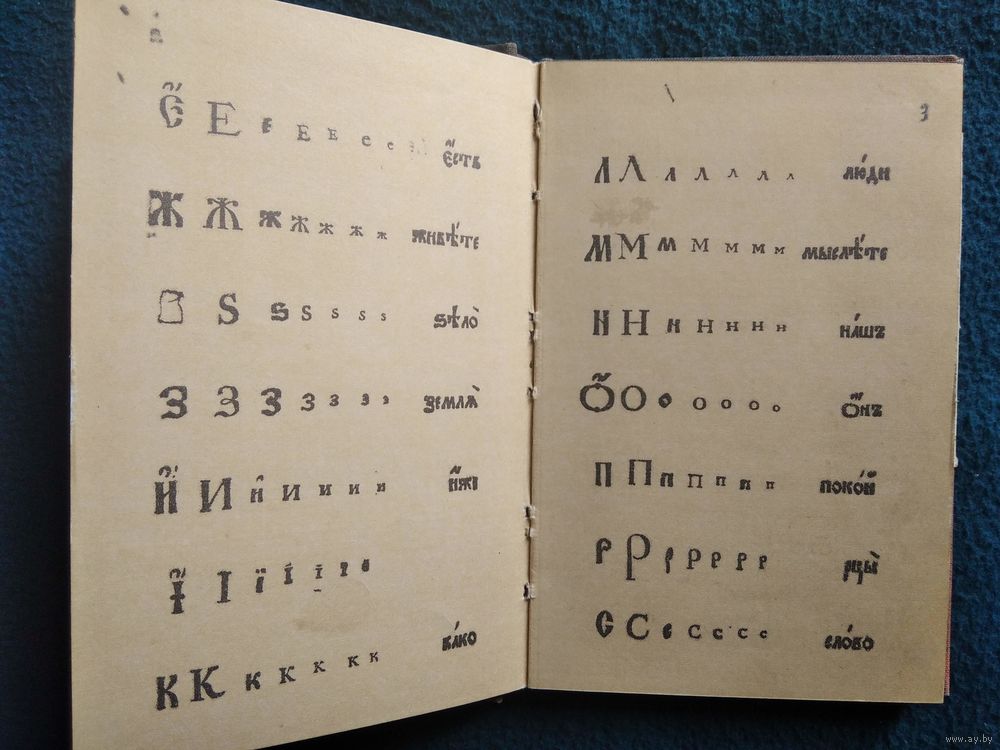 Є҆́ Е є Е Е е е є҆́сть
Ж Ж ж ж ж ж ж живѣ́те
Ѕ Ѕ ѕ ѕ ѕ ѕ ѕѣлѡ̀
З З З з з з з землѧ̀
И҆́ И и и и и и и҆́же
І҆́ І ї і і і ї
К К к к к к к ка́ко
Л Л л л л л л лю́ди
М М м м м м м мыслѣ́те
Н Н н н н н н на́шъ
Ѻ҆́ О о о о о о ѻ҆́нъ
П П п п п п п поко́й
Р Р р р р р р рцы̀
С С с с с с с сло́во
3
www.ay.by